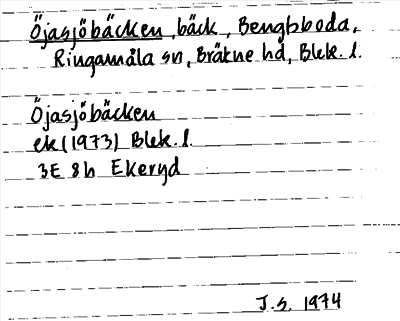 Öjasjöbäcken, bäck, Bengtsboda,
Ringamåla sn, Bräkne hd, Blek. l.
Öjasjöbäcken
ek (1973) Blek. l.
3E 8h Ekeryd
J.S. 1974